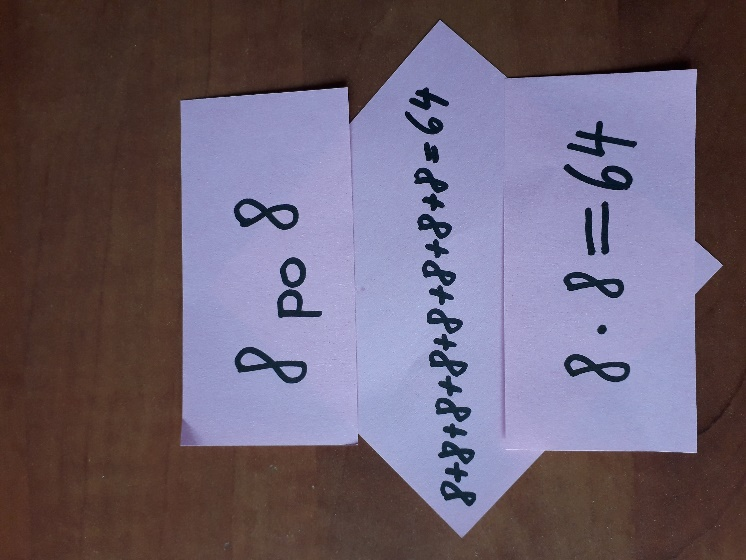 8 po 8
8+8+8+8+8+8+8+8=64
8 · 8 = 64